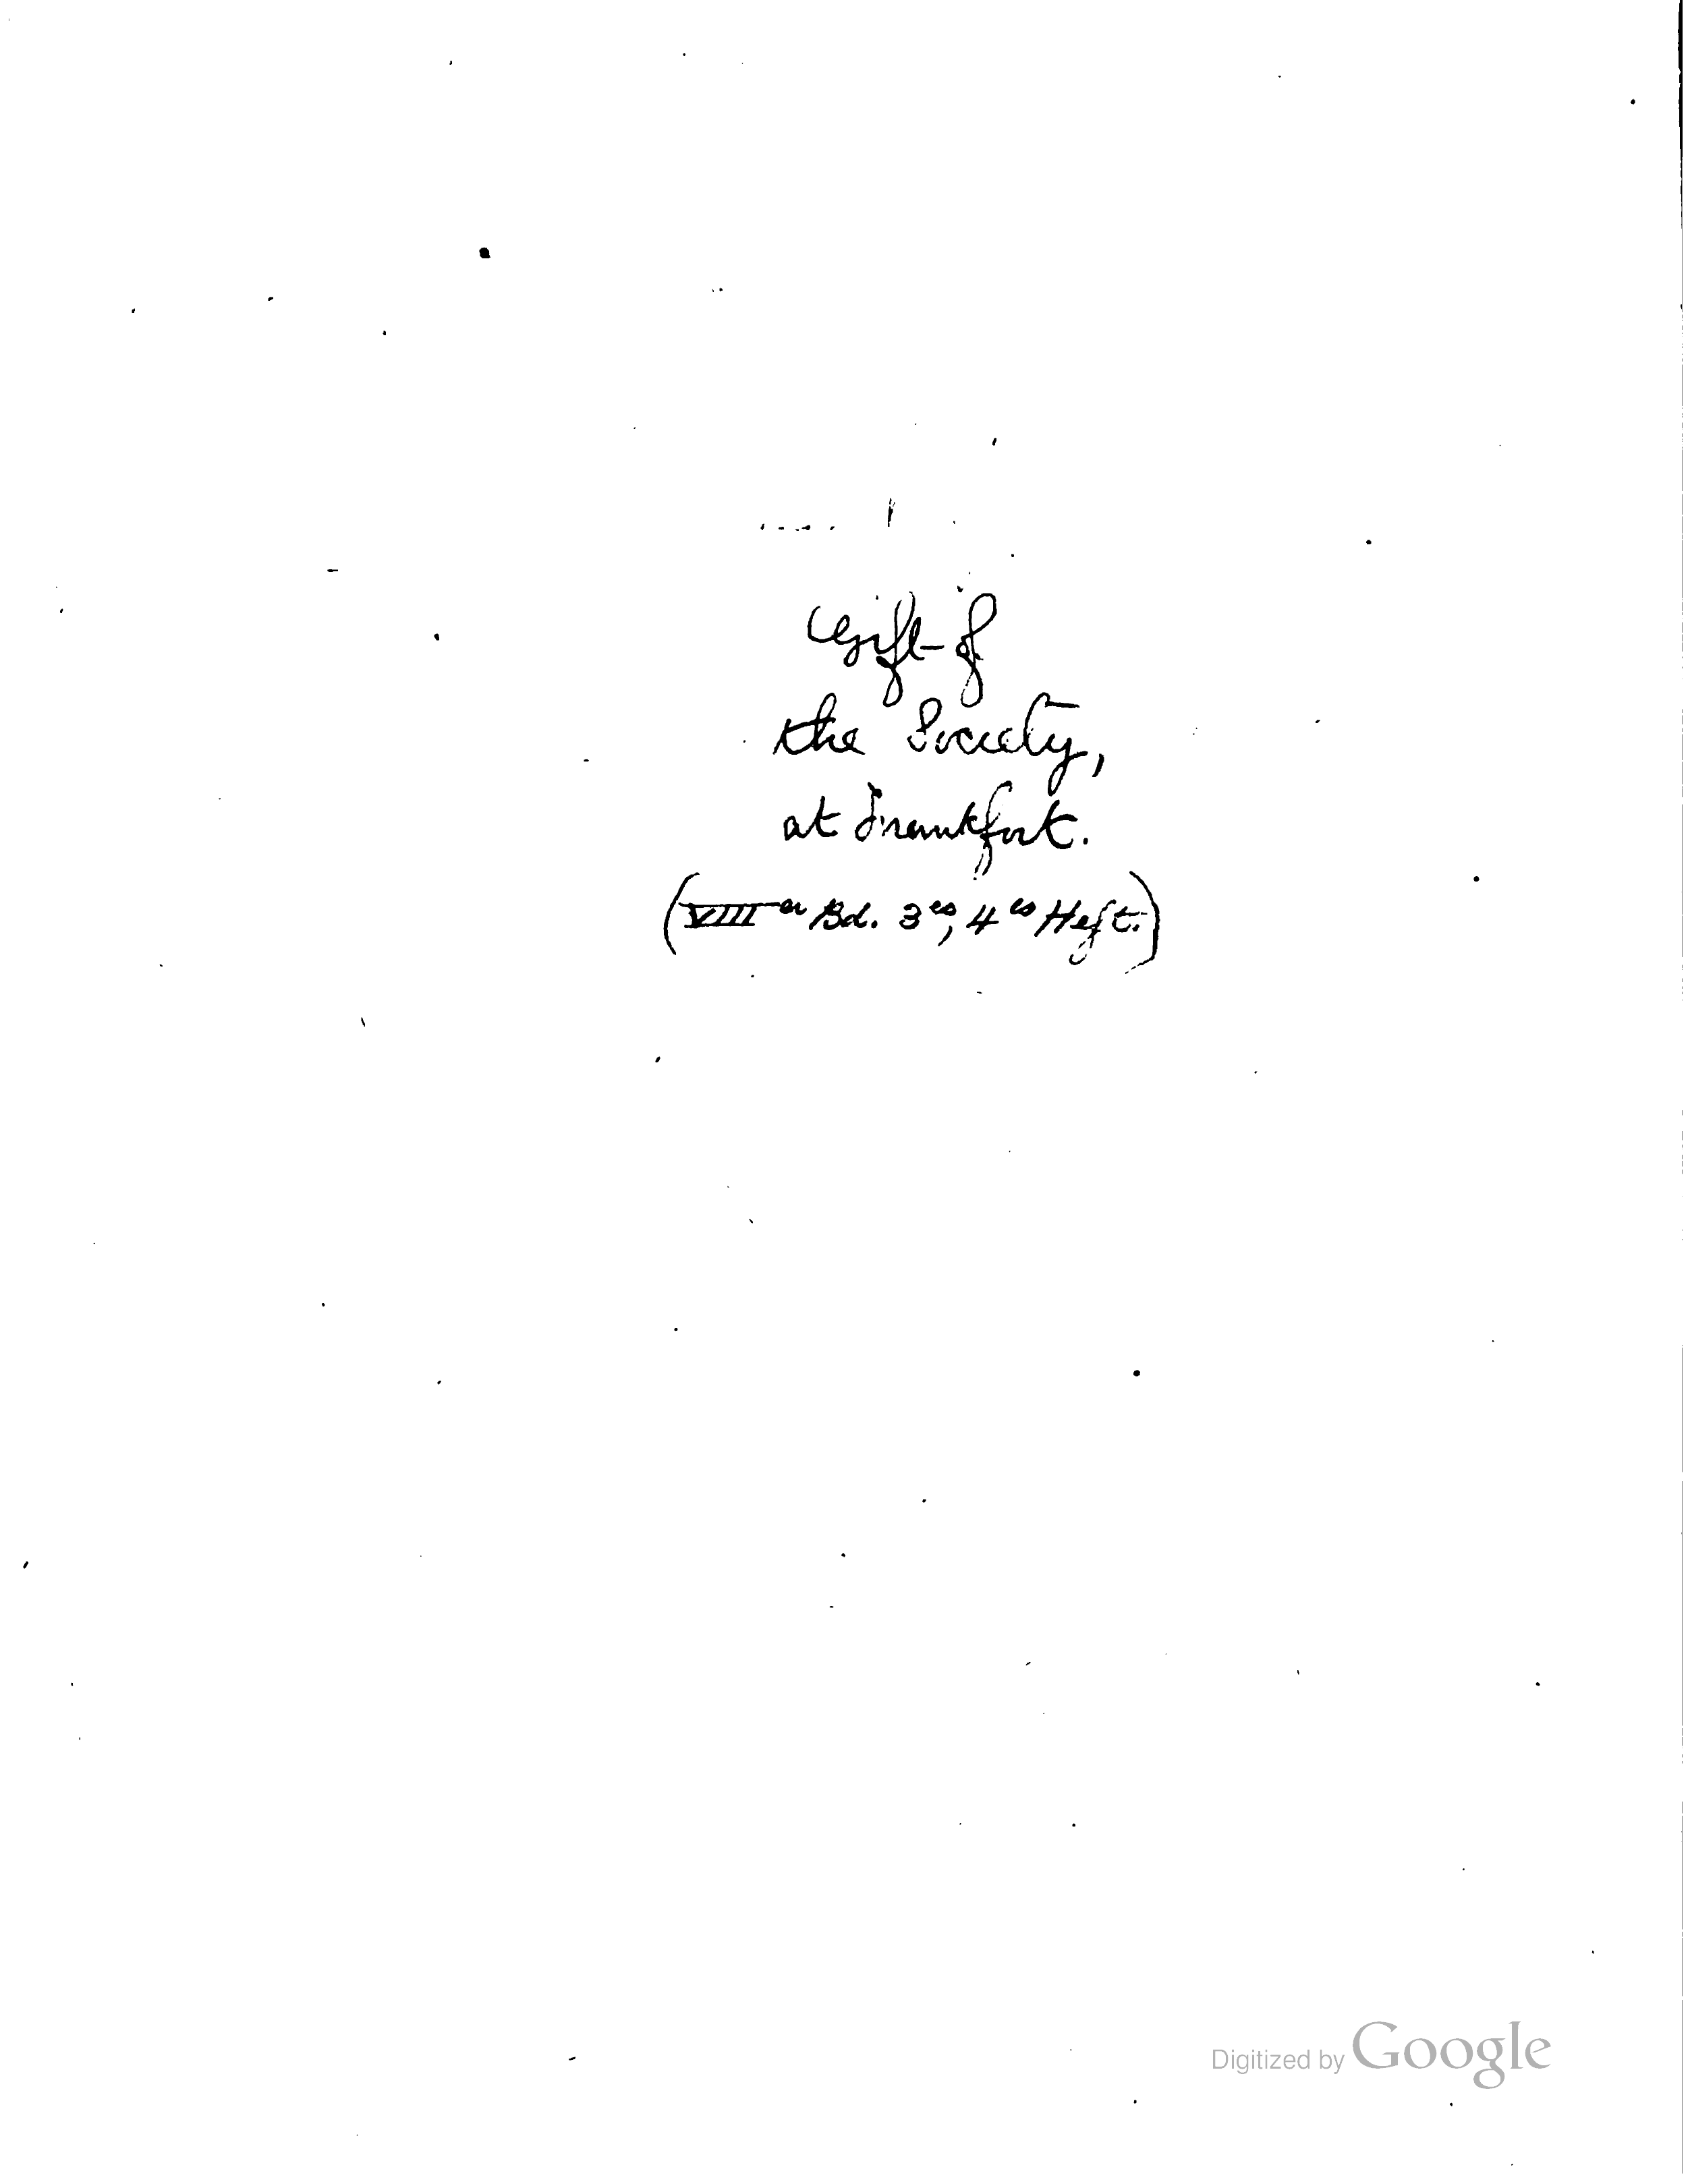 Gift of
the Society,
at Frankfort.
(VIIIIer Bd. 3es, 4es Heft.)
Digitized by Google